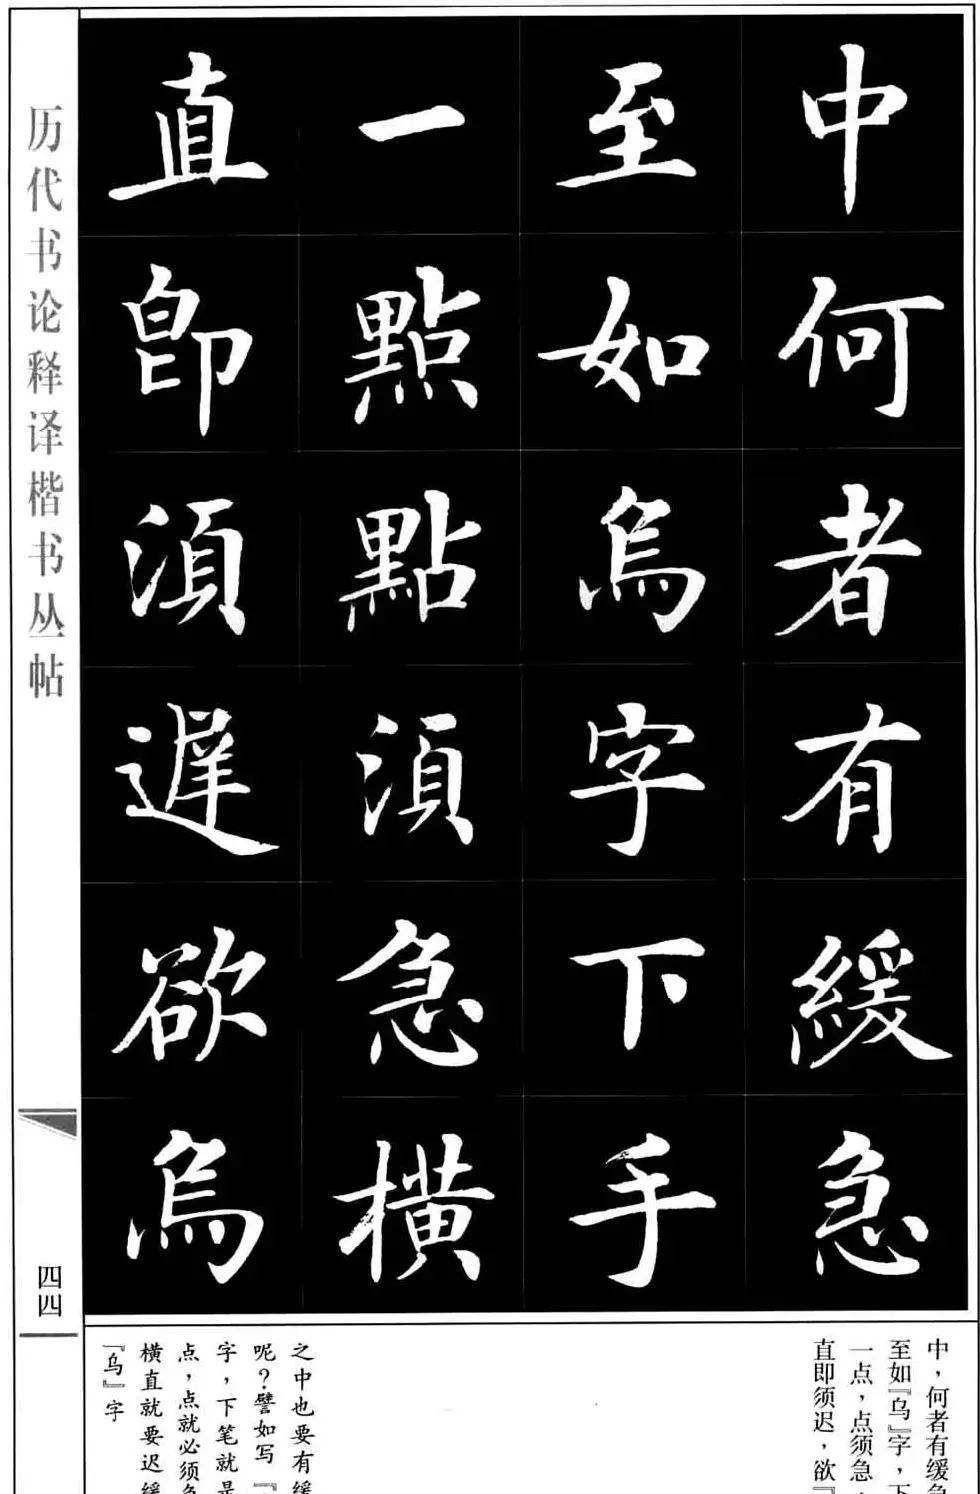 中何者有緩急
至如烏字下手
一點點須急橫
直即須遲欲烏
历代书论释译楷书丛帖
四四
中，何者有缓急
至如『乌』字，下
一点，点须急，
直即须迟，欲『
之中也要有缓
呢？譬如写『
字，下笔就是
点，点就必须急
横直就要迟缓
『乌』字